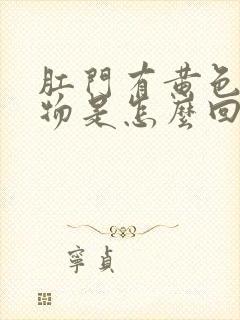 肛門有黄色
物是怎麼回
寧貞